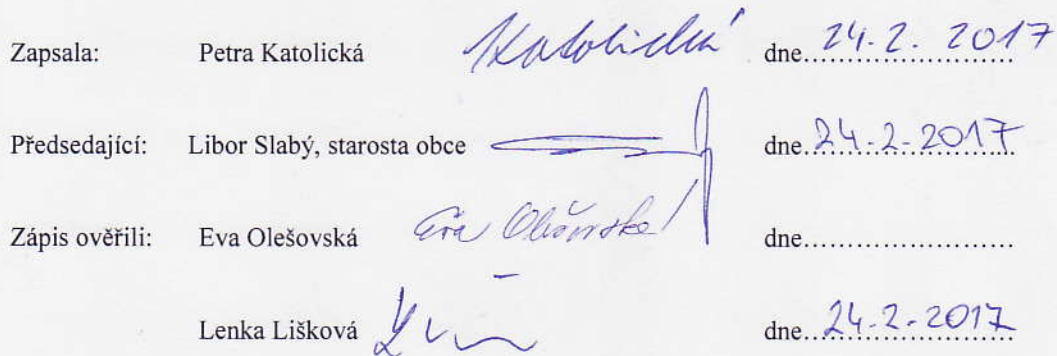 Zapsala: Petra Katolická Katolická dne 24.2. 2017
Předsedající: Libor Slabý, starosta obce dne 24.2.2017
Zápis ověřili: Eva Olešovská Eva Olešovská dne.......................
Lenka Lišková dne 24.2.2017